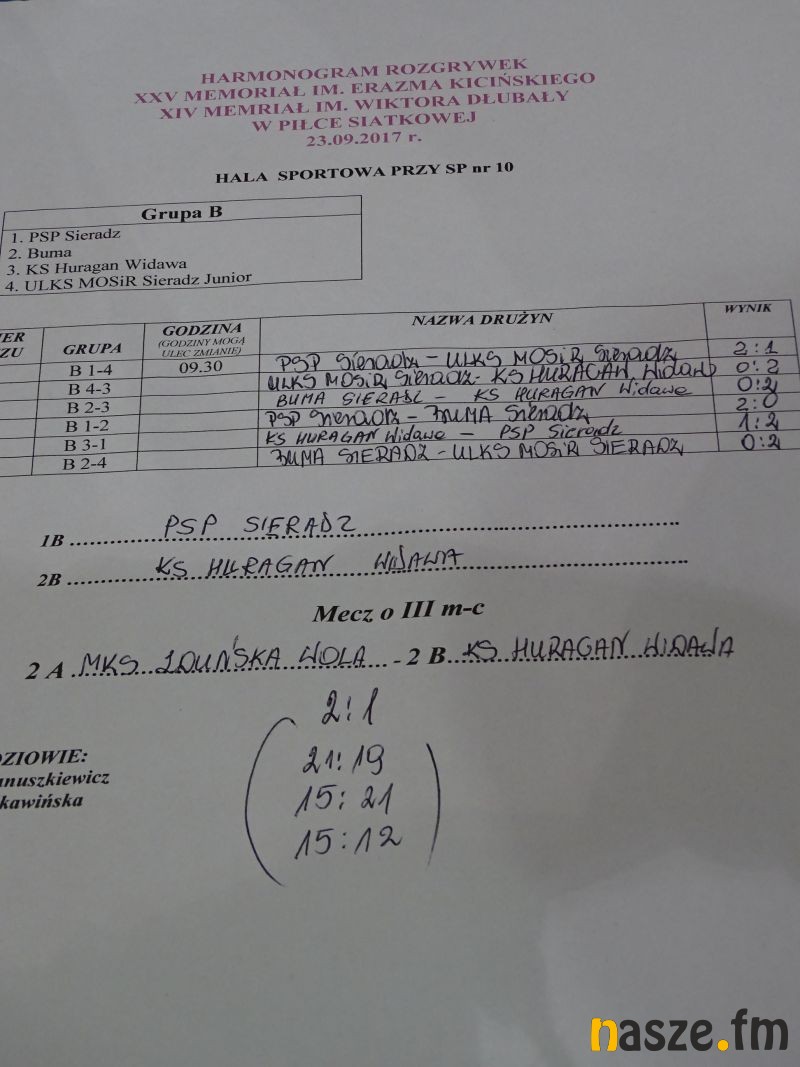 HARMONOGRAM ROZGRYWEK
XXV MEMORIAŁ IM. ERAZMA KICIŃSKIEGO
XIV MEMRIAŁ IM. WIKTORA DŁUBAŁY
W PIŁCE SIATKOWEJ
23.09.2017 r.
HALA SPORTOWA PRZY SP nr 10
Grupa B
1. PSP Sieradz
2. Buma
3. KS Huragan Widawa
4. ULKS MOSiR Sieradz Junior
ER ZU GRUPA GODZINA (GODZINY MOGĄ ULEC ZMIANIE) NAZWA DRUŻYN WYNIK
B 1-4 09.30 PSP Sieradz - ULKS MOSiR Sieradz 2:1
B 4-3 ULKS MOSiR Sieradz - KS HURAGAN Widawa 0:2
B 2-3 BUMA SIERADZ - KS HURAGAN Widawa 0:2
B 1-2 PSP Sieradz - BUMA Sieradz 2:0
B 3-1 KS HURAGAN Widawa - PSP Sieradz 1:2
B 2-4 BUMA SIERADZ - ULKS MOSiR SIERADZ 0:2
1B PSP SIERADZ
2B KS HURAGAN WIDAWA
Mecz o III m-c
2 A MKS ZDUŃSKA WOLA - 2 B KS HURAGAN WIDAWA
2:1
21:19
15:21
15:12
DZIOWIE:
nuszkiewicz
kawińska
nasze.fm